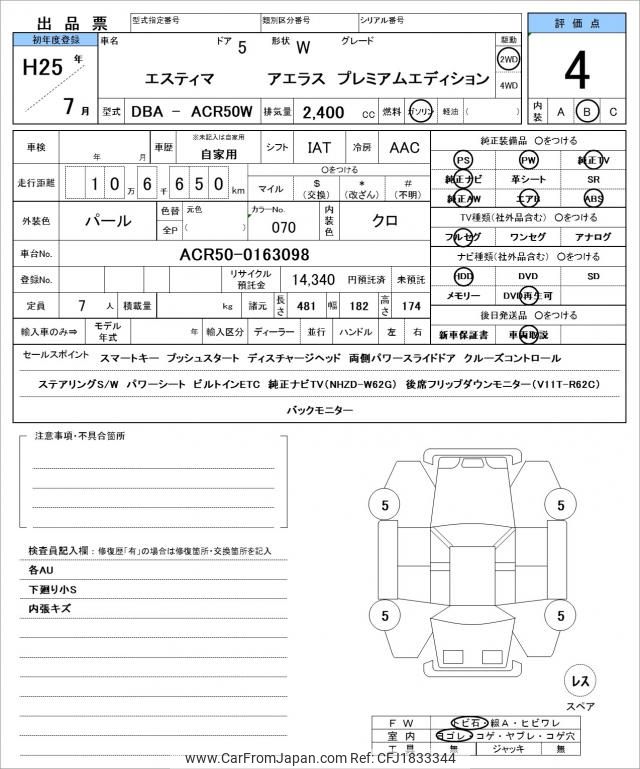 出品票
型式指定番号 類別区分番号 シリアル番号
評価点
初年度登録 車名 ドア 5 形状 W グレード 駆動
H25 年 7 月
エスティマ アエラス プレミアムエディション
2WD
4WD
4
型式 DBA - ACR50W 排気量 2,400 cc 燃料 ガソリン 軽油 ( )
内装 A B C
車検 年 月 車歴 ※未記入は自家用 自家用 シフト IAT 冷房 AAC
走行距離 10万6千650km
○をつける
マイル $(交換) *(改ざん) #(不明)
外装色 パール 色替 元色 全P ( ) カラーNo. 070 内装色 クロ
車台No. ACR50-0163098
登録No. リサイクル預託金 14,340 円預託済 未預託
定員 7 人 積載量 kg 諸元 長さ 481 幅 182 高さ 174
輸入車のみ⇒ モデル年式 年 輸入区分 ディーラー 並行 ハンドル 左 右
純正装備品 ○をつける
PS PW 純正TV
純正ナビ 革シート SR
純正AW エアB ABS
TV種類(社外品含む) ○をつける
フルセグ ワンセグ アナログ
ナビ種類(社外品含む) ○をつける
HDD DVD SD
メモリー DVD再生可
後日発送品 ○をつける
新車保証書 車両取説
セールスポイント スマートキー プッシュスタート ディスチャージヘッド 両側パワースライドドア クルーズコントロール
ステアリングS/W パワーシート ビルトインETC 純正ナビTV(NHZD-W62G) 後席フリップダウンモニター(V11T-R62C)
バックモニター
注意事項・不具合箇所
検査員記入欄：修復歴「有」の場合は修復箇所・交換箇所を記入
各AU
下廻り小S
内張キズ
5 5
5 5
レス
スペア
FW トビ石・線A・ヒビワレ
室内 ヨゴレ・コゲ・ヤブレ・コゲ穴
工具 無 ジャッキ 無
www.CarFromJapan.com Ref: CFJ1833344